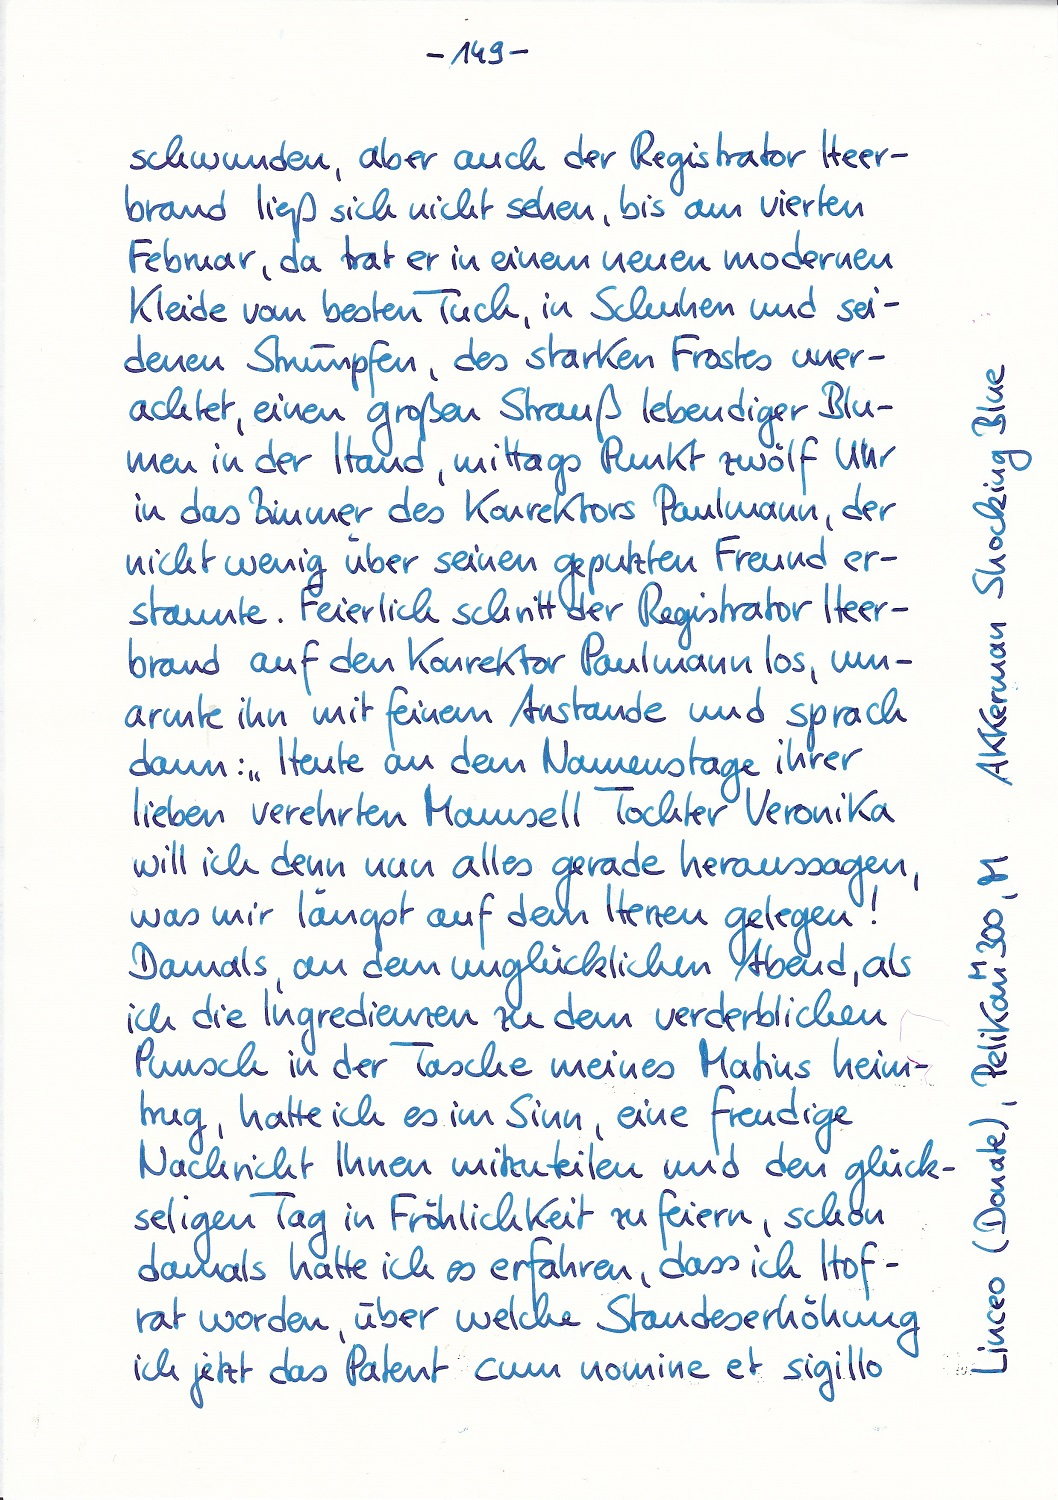 -149-
schwunden, aber auch der Registrator Heer-
brand ließ sich nicht sehen, bis am vierten
Februar, da trat er in einem neuen modernen
Kleide vom besten Tuch, in Schuhen und sei-
denen Strümpfen, des starken Frostes uner-
achtet, einen großen Strauß lebendiger Blu-
men in der Hand, mittags Punkt zwölf Uhr
in das Zimmer des Konrektors Paulmann, der
nicht wenig über seinen geputzten Freund er-
staunte. Feierlich schritt der Registrator Heer-
brand auf den Konrektor Paulmann los, um-
armte ihn mit feinem Anstande und sprach
dann: „Heute an dem Namenstage ihrer
lieben verehrten Mamsell Tochter Veronika
will ich denn nun alles gerade heraussagen,
was mir längst auf dem Herzen gelegen!
Damals, an dem unglücklichen Abend, als
ich die Ingredienzen zu dem verderblichen
Punsch in der Tasche meines Matins heim-
trug, hatte ich es im Sinn, eine freudige
Nachricht Ihnen mitzuteilen und den glück-
seligen Tag in Fröhlichkeit zu feiern, schon
damals hatte ich es erfahren, dass ich Hof-
rat worden, über welche Standeserhöhung
ich jetzt das Patent cum nomine et sigillo
Linceo (Donate), Pelikan M 300, M AKKerman Shocking Blue